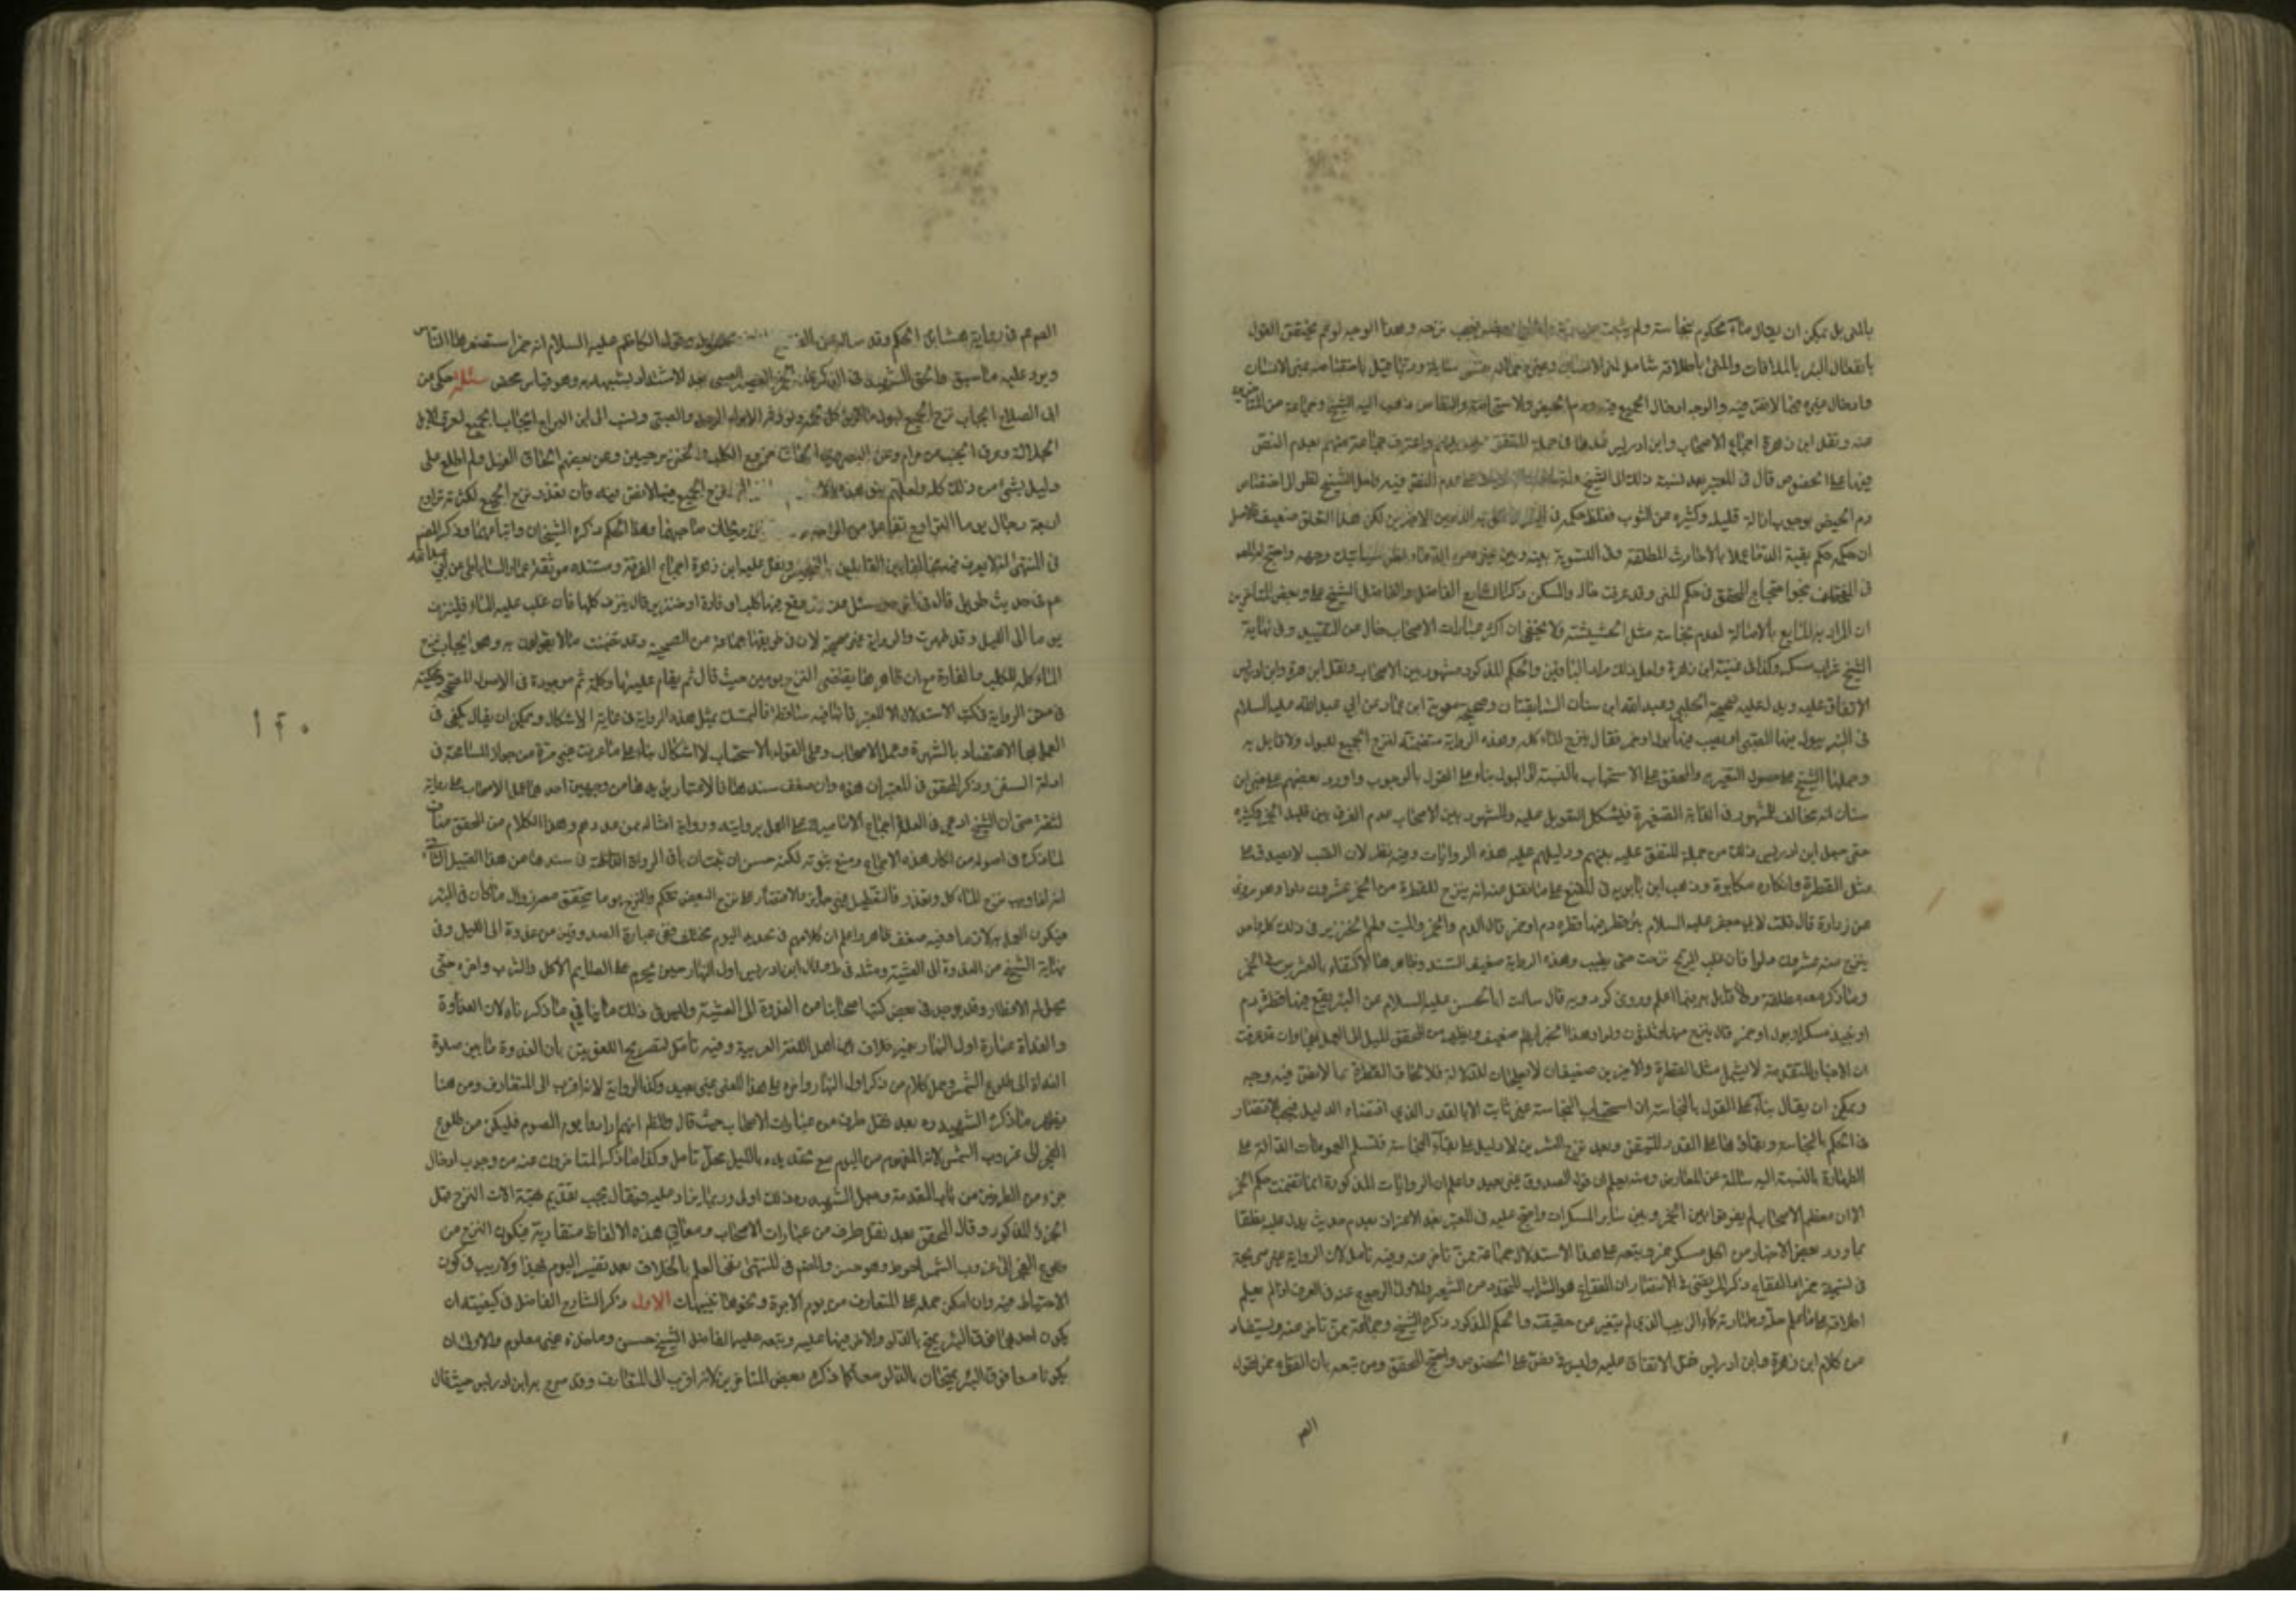 بالمني بل يمكن ان يقال ماء محكوم بنجاسة ولم يثبت فيجب نزحه وهذا الوجه لو تم يختص القول
بانفعال البئر بالملاقات والمني باطلاقه شامل لمني الانسان وغيره مما له نفس سائلة وربما قيل باختصاصه بمني الانسان
وادخال غيره فيما لا نص فيه والوجه ادخال الجميع فيه ودم الحيض والاستحاضة والنفاس ذهب اليه الشيخ وجماعة من المتاخرين
عنه ونقل ابن زهرة اجماع الاصحاب وابن ادريس في جملة المتفق واعترف جماعة منهم بعدم النص
فيها على الخصوص قال في المعتبر بعد نسبة ذلك الى الشيخ عدم النص فيه ولعل الشيخ نظر الى اختصاص
دم الحيض بوجوب ازالة قليله وكثيره عن الثوب فغلظ حكمه في البئر والحق به الدمين الاخرين لكن هذا التعلق ضعيف فالاصل
ان حكمه حكم بقية الدماء عملا بالاحاديث المطلقة وفي التسوية بينه وبين غيره من الدماء نظر سياتيك وجهه واحتج له المصـ
في المختلف بنحو احتجاج المحقق في حكم المني وقد عرفت حاله والمسكر ذكر الشارح الفاضل والفاضل الشيخ علي وبعض المتاخرين
ان المراد به المايع بالاصالة لعدم نجاسة مثل الحشيشة ولا يخفى ان اكثر عبارات الاصحاب خال من التقييد وفي نهاية
الشيخ شراب مسكر وكذا في غنية ابن زهرة ولعل ذلك مراد الباقين والحكم المذكور مشهور بين الاصحاب ونقل ابن زهرة وابن ادريس
الاتفاق عليه ويدل عليه صحيحة الحلبي وعبد الله ابن سنان السابقتان وصحيحة معوية ابن عمار عن ابي عبد الله عليه السلام
في البئر يبول فيها الصبي او يصب فيها بول او خمر فقال ينزح الماء كله وهذه الرواية متضمنة لنزح الجميع للبول ولا قايل به
وحملها الشيخ على حصول التغير والمحقق على الاستحباب بالنسبة الى البول بناء على القول بالوجوب واورد بعضهم على خبر ابن
سنان انه مخالف للمشهور في الدابة الصغيرة فيشكل التعويل عليه والمشهور بين الاصحاب عدم الفرق بين قليل الخمر وكثيره
حتى جعل ابن ادريس ذلك من جملة المتفق عليه بينهم ودليلهم عليه هذه الروايات وفيه نظر لان الصب لا يصدق على
مثل القطرة وانكاره مكابرة وذهب ابن بابويه في المقنع على ما نقل عنه انه ينزح للقطرة من الخمر عشرون دلوا وهو مروي
عن زرارة قال قلت لابي جعفر عليه السلام بئر قطر فيها قطرة دم او خمر قال الدم والخمر والميت ولحم الخنزير في ذلك كله واحد
ينزح منه عشرون دلوا فان غلب الريح نزحت حتى يطيب وهذه الرواية ضعيفة السند وظاهر هنا الاكتفاء بالعشرين في الخمر
وما ذكر معه مطلقة ولا قايل به فيما اعلم وروى كردويه قال سالت ابا الحسن عليه السلام عن البئر يقع فيها قطرة دم
او نبيذ مسكر او بول او خمر قال ينزح منها ثلثون دلوا وهذا الخبر ايضا ضعيف ويظهر من المحقق الميل الى العمل بها وان قد عرفت
ان الاخبار المتقدمة لا يشمل مثل القطرة والاخيرين ضعيفان لا يصلحان للدلالة فلا لحاق القطرة بما لا نص فيه وجه
ويمكن ان يقال بناء على القول بالنجاسة ان استصحاب النجاسة غير ثابت الا بالقدر الذي اقتضاه الدليل فيجب الاقتصار
في الحكم بالنجاسة وبقائها على القدر المتيقن وبعد نزح العشرين لا دليل على بقاء النجاسة فتسلم العمومات الدالة على
الطهارة بالنسبة اليه سالمة عن المعارض ومنه يعلم ان قول الصدوق غير بعيد واعلم ان الروايات المذكورة انما تضمنت حكم الخمر
الا ان معظم الاصحاب لم يفرقوا بين الخمر وبين سائر المسكرات واحتج عليه في المعتبر بعد الاعتراف بعدم حديث يدل عليه بظلقا
بما ورد بعض الاخبار من ان كل مسكر خمر وتبعه على هذا الاستدلال جماعة ممن تاخر عنه وفيه تامل لان الرواية غير صريحة
في تسمية خمرا والفقاع ذكر المرتضى في الانتصار ان الفقاع هو الشراب المتخذ من الشعير والاولى الرجوع عنه في العرف او لم يعلم
اطلاقه عليه ما علم حله وطهارته كماء الزبيب الذي لم يتغير عن حقيقته والحكم المذكور ذكره الشيخ وجماعة ممن تاخر عنه ويستفاد
من كلام ابن زهرة وابن ادريس نقل الاتفاق عليه وليس فيه نص على الخصوص واحتج المحقق ومن تبعه بان الفقاع خمر لقول
الصـ
الصم عم في رواية هشام ابن الحكم وقد ساله عن الفقاع وقول الكاظم عليه السلام انه خمر استصغرها الناس
ويرد عليه ما سبق والحق الشهيد في الذكرى العصير العنبي بعد الاشتداد بشبهه به وهو قياس محض مسئلة حكى عن
ابي الصلاح ايجاب نزح الجميع لبول ما لا يؤكل لحمه ونسب الى ابن البراج ايجاب الجميع لعرق الابل
الجلالة وعرق الجنب من حرام وعن البصروي الحاق خروج الكلب والخنزير حيين وعن بعضهم الحاق الفيل ولم اطلع على
دليل بشيء من ذلك كله ولعلهم نزح الجميع فيما لا نص فيه فان تعذر نزح الجميع لكثرته تراوح
اربعة رجال يوما التراوح تفاعل من الراحة يريحان صاحبهما وهذا الحكم ذكره الشيخان واتباعهما وذكر المصـ
في المنتهى انه لا يعرف فيه مخالفا بين القايلين بالتنجيس ونقل عليه ابن زهرة اجماع الفرقة ومستنده موثقة عمار الساباطي عن ابي عبد الله
عم في حديث طويل قال سئل عن بئر يقع فيها كلب او فارة او خنزير قال ينزف كلها فان غلب عليه الماء فلينزف
يوما الى الليل وقد طهرت والرواية غير صحيحة لان في طريقها جماعة من الفطحية وقد تضمنت ما لا يقولون به وهو ايجاب نزح
الماء كله للكلب والفارة مع ان ظاهرها يقتضي النزح يومين حيث قال ثم يقام عليها وكلمة ثم موجودة في الاصول المصححة وحكيته
في متن الرواية في كتب الاستدلال الا المعتبر فانها فيه ساقطة فالتمسك بمثل هذه الرواية في غاية الاشكال ويمكن ان يقال يكفي في
العمل بها الاعتضاد بالشهرة وعمل الاصحاب وعلى القول بالاستحباب لا اشكال بناء على ما عرفت غير مرة من جواز المسامحة في
ادلة السنن وذكر المحقق في المعتبر ان هذه وان ضعف سندها فالاعتبار يؤيدها من وجهين احدهما عمل الاصحاب على رواية
لثقته حتى ان الشيخ ادعى في العدة اجماع الامامية على العمل بروايته ورواية امثاله ممن عددهم وهذا الكلام من المحقق مناف
لما ذكره في اصوله من انكار هذه الاجماع ومنع ثبوته لكنه حسن ان ثبت ان باقي الرواة الفطحية في سندها من هذا القبيل الثاني
انه اذا وجب نزح الماء كله وتعذر فالتعطيل غير جائز والاقتصار على نزح البعض تحكم والنزح يوما يتحقق معه زوال ما كان في البئر
فيكون العمل به لازما وفيه ضعف ظاهر واعلم ان كلامهم في تحديد اليوم مختلف ففي عبارة الصدوقين من غدوة الى الليل وفي
نهاية الشيخ من الغدوة الى العشية ومثله في ط وقال ابن ادريس اول النهار حين يحرم على الصايم الاكل والشرب واخره حتى
يحل له الافطار وقد يوجد في بعض كتب اصحابنا من الغدوة الى العشية وليس في ذلك ما ينافي ما ذكرناه لان الغدوة
والغداة عبارة اول النهار بغير خلاف بين اهل اللغة العربية وفيه تامل لتصريح اللغويين بان الغدوة ما بين صلوة
الغداة الى طلوع الشمس وحمل كلام من ذكر اول النهار واخره على هذا المعنى غير بعيد وكذا الرواية لانه اقرب الى المتعارف ومن هنا
يظهر ما ذكره الشهيد ره بعد نقل طرف من عبارات الاصحاب حيث قال والظاهر انهم ارادوا به يوم الصوم فليكن من طلوع
الفجر الى غروب الشمس لانه المفهوم من اليوم مع تحديده بالليل محل تامل وكذا ما ذكر المتاخرون عنه من وجوب ادخال
جزء من الطرفين من باب المقدمة وجعل الشهيد ره ذلك اولى وربما يزاد عليه فيقال يجب تقديم تهيئة الات النزح قبل
الجزء المذكور وقال المحقق بعد نقل طرف من عبارات الاصحاب ومعاني هذه الالفاظ متقاربة فيكون النزح من
طلوع الفجر الى غروب الشمس احوط وهو حسن والمصـ في المنتهى نفى العلم بالخلاف بعد تفسير اليوم بهذا ولا ريب في كون
الاحتياط فيه وان امكن حمله على المتعارف من يوم الاجرة ونحوها تنبيهات الاول ذكر الشارح الفاضل في كيفيته ان
يكون احدهما فوق البئر يمتح بالدلو والاخر فيها عليه وتبعه عليه الفاضل الشيخ حسن وماخذه غير معلوم والاولى ان
يكونا معا فوق البئر يمتحان بالدلو معا كما ذكره بعض المتاخرين لانه اقرب الى المتعارف وقد صرح به ابن ادريس حيث قال